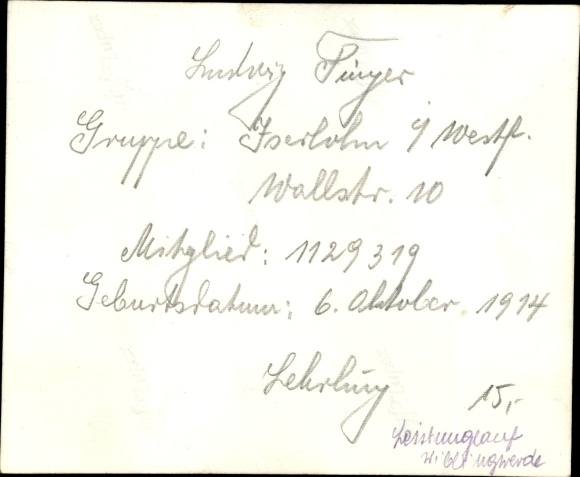 Ludwig Finger
Gruppe: Iserlohn i/Westf.
Wallstr. 10
Mitglied: 1129319
Geburtsdatum: 6. Oktober 1914
Lehrling
15,-
Leistungslauf
Wiblingwerde